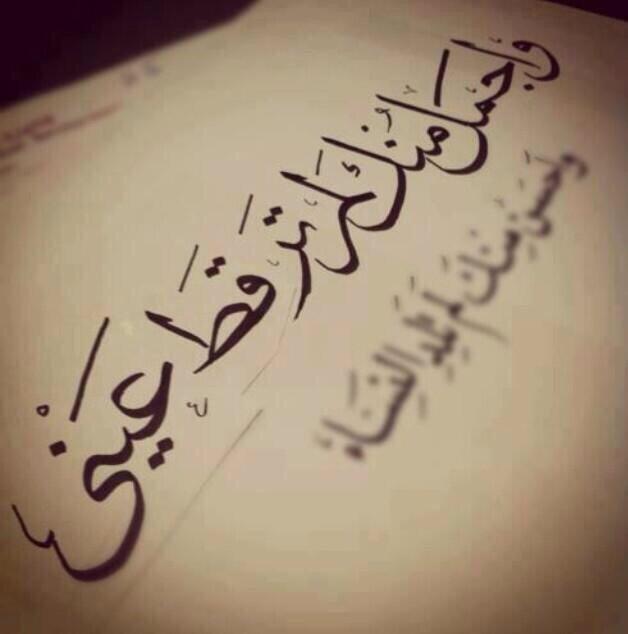 وَأَجمَلَ مِنْكَ لَم تَرَ قَطُّ عَيْنِي
وَأَحسَنُ مِنكَ لَم تَلِدِ النِسَاءُ